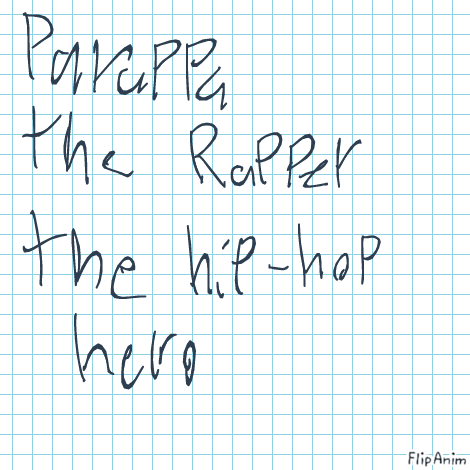 Parappa
the Rapper
the hip-hop
hero
FlipAnim